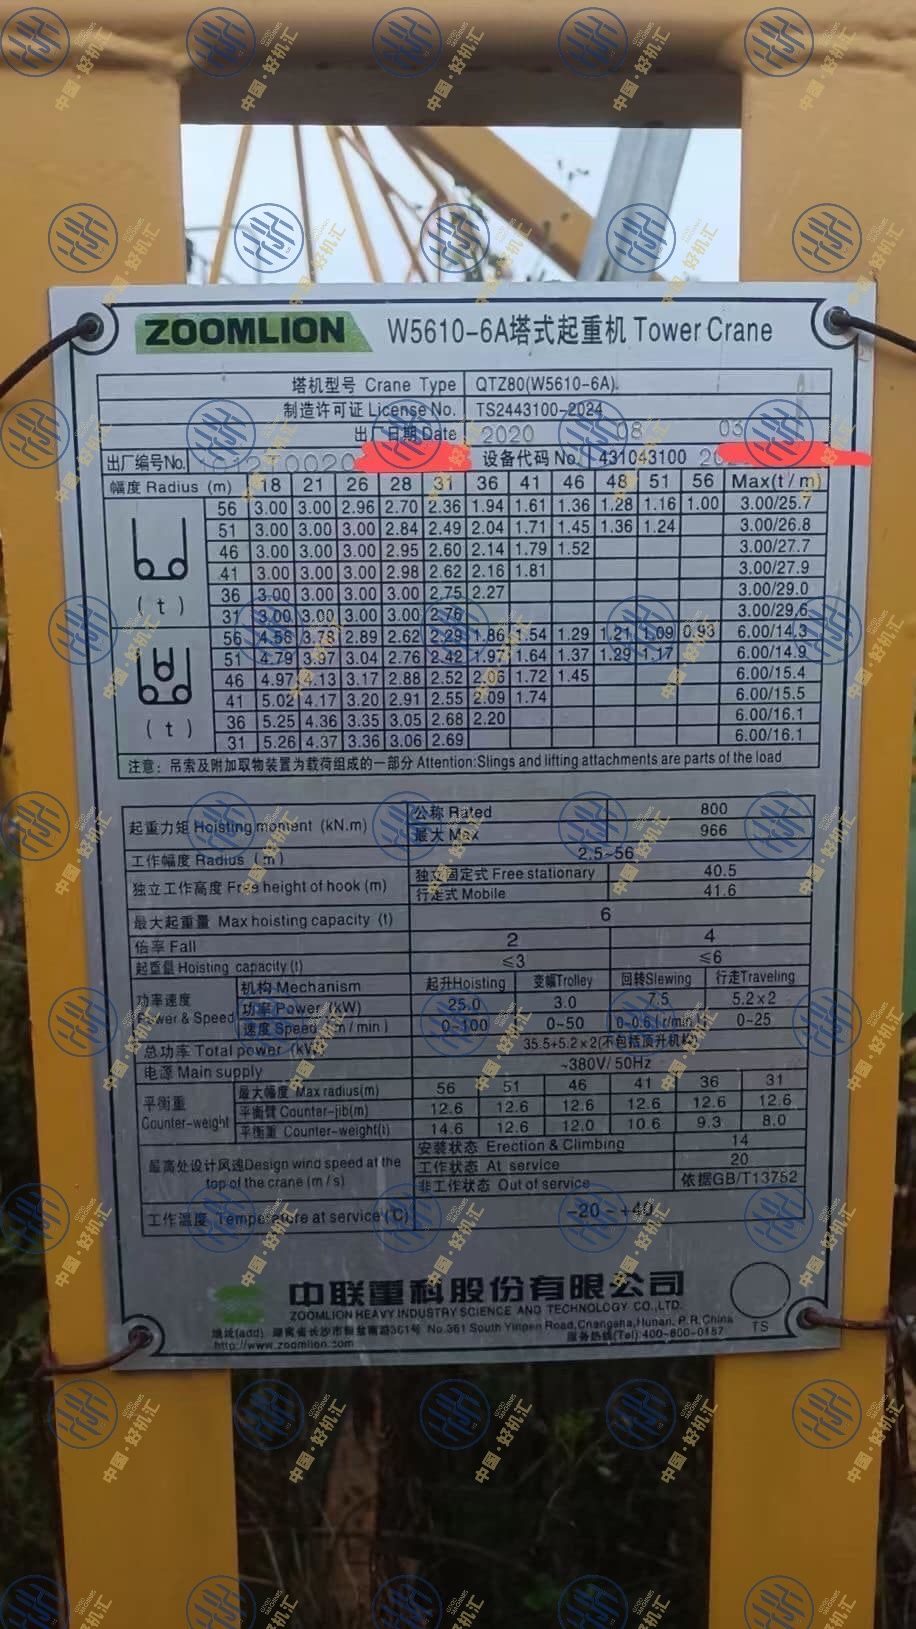 ZOOMLION W5610-6A塔式起重机 Tower Crane
塔机型号 Crane Type QTZ80(W5610-6A)
制造许可证 License No. TS2443100-2024
出厂日期 Date 2020 08 03
出厂编号No. 设备代码 No. 431043100
幅度 Radius (m) 18 21 26 28 31 36 41 46 48 51 56 Max(t/m)
56 3.00 3.00 2.96 2.70 2.36 1.94 1.61 1.36 1.28 1.16 1.00 3.00/25.7
51 3.00 3.00 3.00 2.84 2.49 2.04 1.71 1.45 1.36 1.24 3.00/26.8
46 3.00 3.00 3.00 2.95 2.60 2.14 1.79 1.52 3.00/27.7
41 3.00 3.00 3.00 2.98 2.62 2.16 1.81 3.00/27.9
36 3.00 3.00 3.00 3.00 2.75 2.27 3.00/29.0
(t)
31 3.00 3.00 3.00 3.00 2.76 3.00/29.6
56 4.56 3.78 2.89 2.62 2.29 1.86 1.54 1.29 1.21 1.09 0.93 6.00/14.3
51 4.79 3.97 3.04 2.76 2.42 1.97 1.64 1.37 1.29 1.17 6.00/14.9
46 4.97 4.13 3.17 2.88 2.52 2.06 1.72 1.45 6.00/15.4
41 5.02 4.17 3.20 2.91 2.55 2.09 1.74 6.00/15.5
(t)
36 5.25 4.36 3.35 3.05 2.68 2.20 6.00/16.1
31 5.26 4.37 3.36 3.06 2.69 6.00/16.1
注意：吊索及附加取物装置为载荷组成的一部分 Attention:Slings and lifting attachments are parts of the load
起重力矩 Hoisting moment (kN.m) 公称 Rated 800
最大 Max 966
工作幅度 Radius (m) 2.5~56
独立工作高度 Free height of hook (m) 独立固定式 Free stationary 40.5
行走式 Mobile 41.6
最大起重量 Max hoisting capacity (t) 6
倍率 Fall 2 4
起重量 Hoisting capacity(t) ≤3 ≤6
功率速度 Power & Speed 机构 Mechanism 起升Hoisting 变幅Trolley 回转Slewing 行走Traveling
功率 Power (kW) 25.0 3.0 7.5 5.2×2
速度 Speed (m/min) 0~100 0~50 0~0.6(r/min) 0~25
总功率 Total power (kW) 35.5+5.2×2(不包括顶升机构)
电源 Main supply ~380V/50Hz
平衡重 Counter-weight 最大幅度 Max radius(m) 56 51 46 41 36 31
平衡臂 Counter-jib(m) 12.6 12.6 12.6 12.6 12.6 12.6
平衡重 Counter-weight(t) 14.6 12.6 12.0 10.6 9.3 8.0
最高处设计风速Design wind speed at the top of the crane (m/s) 安装状态 Erection & Climbing 14
工作状态 At service 20
非工作状态 Out of service 依据GB/T13752
工作温度 Temperature at service(℃) -20~+40
中联重科股份有限公司
ZOOMLION HEAVY INDUSTRY SCIENCE AND TECHNOLOGY CO.,LTD.
地址(add) 湖南省长沙市银盆南路361号 No.361 South Yinpen Road,Changsha,Hunan, P.R.China
http://www.zoomlion.com 服务热线(Tel):400-800-0157
TS
中国·好机汇